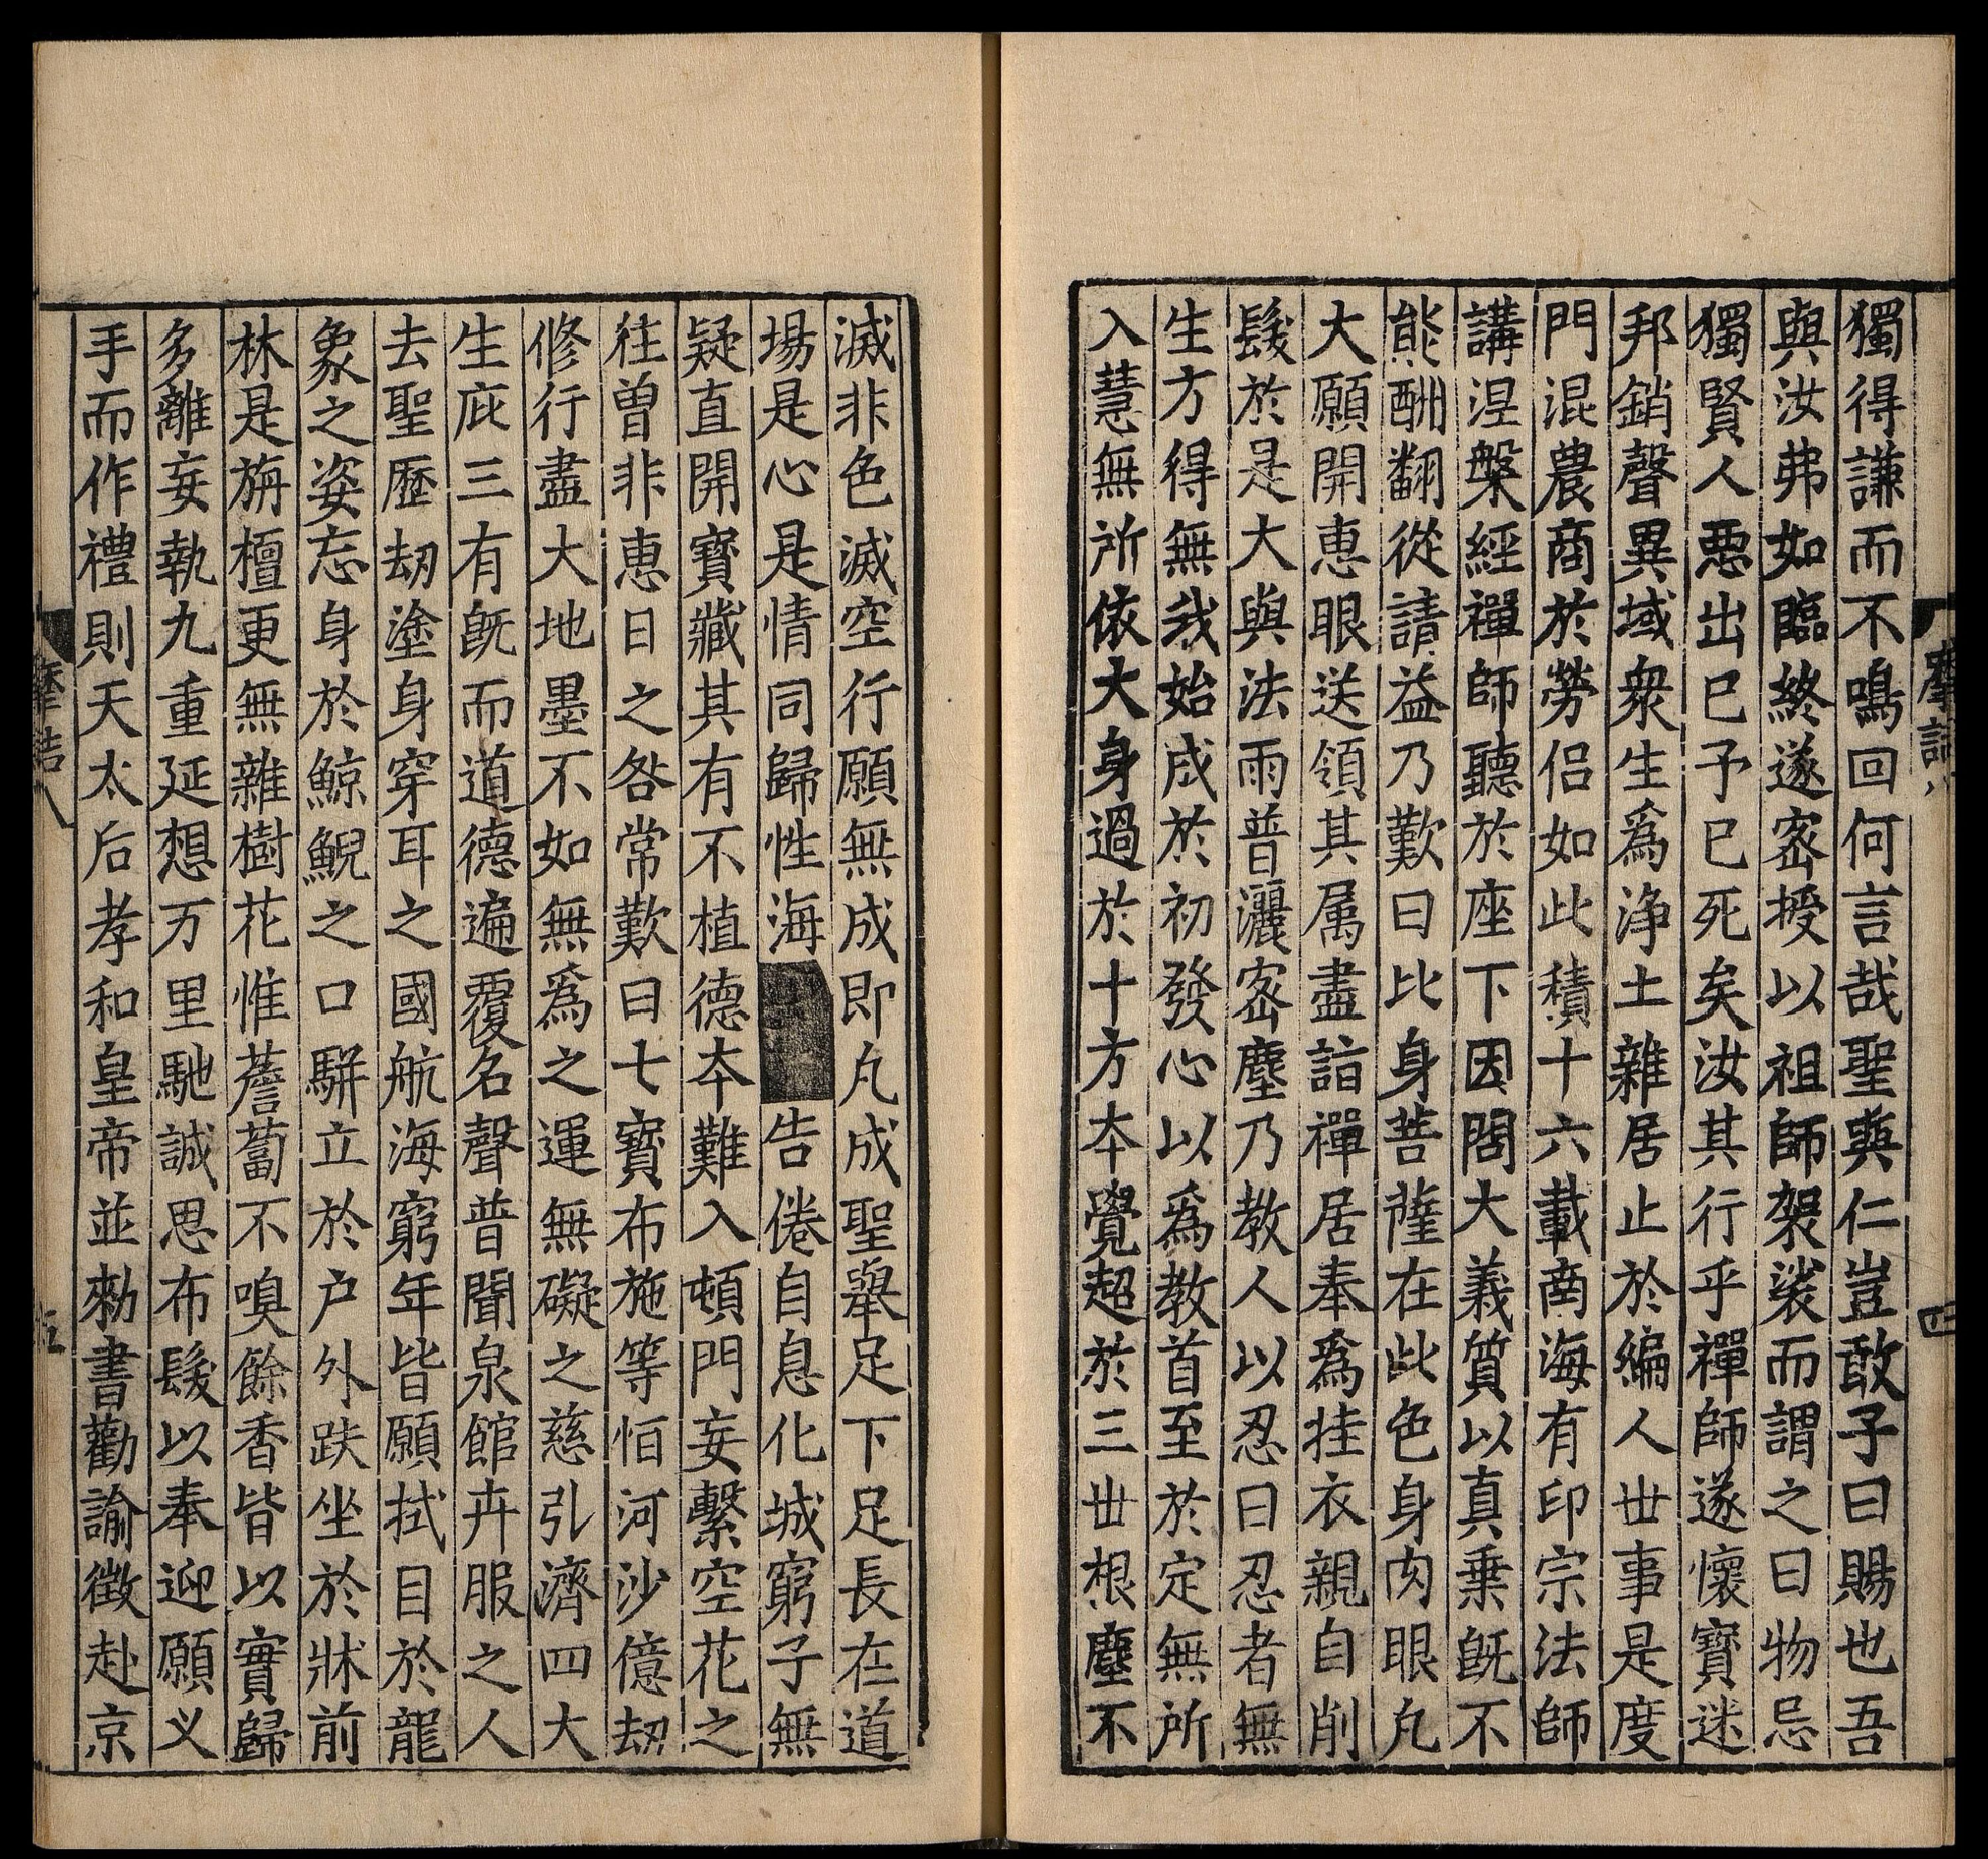 獨得謙而不鳴回何言哉聖與仁豈敢子曰賜也吾
與汝弗如臨終遂宻授以祖師袈裟而謂之曰物忌
獨賢人惡出已予已死矣汝其行乎禪師遂懷寳迷
邦銷聲異域衆生爲浄土雜居止於編人丗事是度
門混農商於勞侣如此積十六載南海有印宗法師
講涅槃經禪師聽於座下因問大義質以真乗旣不
能酬翻從請益乃歎曰比身菩薩在此色身肉眼凡
大願開惠眼送領其属盡詣禪居奉爲挂衣親自削
髮於是大興法雨普灑宻塵乃教人以忍曰忍者無
生方得無我始成於初發心以爲教首至於定無所
入慧無所依大身過於十方本覺超於三丗根塵不
滅非色滅空行願無成即凡成聖舉足下足長在道
塲是心是情同歸性海告倦自息化城窮子無
疑直開寳藏其有不植德本難入頓門妄繫空花之
狂曾非惠日之咎常歎曰七寳布施等恒河沙億刼
修行盡大地墨不如無爲之運無礙之慈引濟四大
生庇三有旣而道德遍覆名聲普聞泉館卉服之人
去聖歷刼塗身穿耳之國航海窮年皆願拭目於龍
象之姿忘身於鯨鯢之口駢立於户外趺坐於牀前
林是旃檀更無雜樹花惟薝蔔不嗅餘香皆以實歸
多離妄執九重延想万里馳誠思布髮以奉迎願义
手而作禮則天太后孝和皇帝並勑書勸諭徵赴京